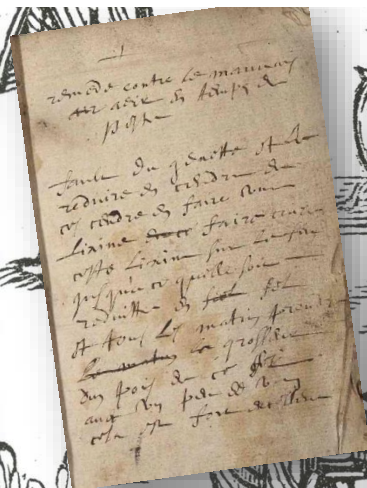 1
remede contre le mauvais
air en temps de
peste
du genette et le
reduire en cendre de
ces cendre en faire une
lixive faire cuire
ceste lixive sur le feu
jusque ce quelle soit
reduitte en sel
et tous les matin prendre
le matin la grosseur
dun pois de ce sel
avec un peu de vin
cela est fort